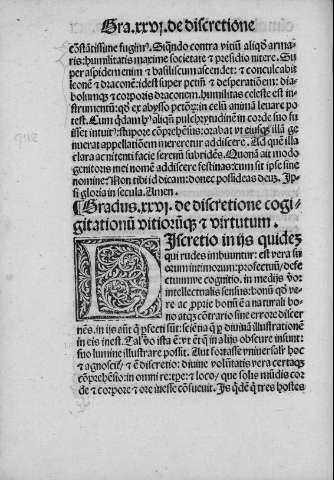 Gra.xxvj.de discretione
cōstātissime fugimꝰ. Siqͤndo contra vitiū aliqď arma-
ris: humilitatis maxime societate ⁊ presidio nitere. Su
per aspidem enim ⁊ basiliscum ascendet: ⁊ conculcabit
leonē ⁊ draconē: idest super petm̄ ⁊ desperatiōem: dia-
bolumqͥ ⁊ corporis draconem. humilitas celeste est in-
strumentū: qď ex abysso petōꝝ: in celū animā leuare po
test. Cum qdam hͦ aliqn̄ pulchrytudinē in corde suo fu
isset intuitꝰ: stupore cōprehēsus: orabat vt eiusqͥ illā ge
nuerat appellatiōem mereretur addiscere. Ad quē illa
clara ac nitenti facie serenū subridēs. Quonā ait modo
genitoris mei nomē addiscere festinas: cum sit ipse sine
nomine: Nō tibi id dicam: donec possideas deus. Ip-
si gloria in secula. Amen.
Gradus.xxvj. de discretione cogi-
gitationū vitiorūqͥ ⁊ virtutum.
DIscretio in ijs quidez
qui rudes imbuuntur: est vera su
orum intimorum: profectuū/ defe
ctuumve cognitio. in medijs v̄or
intellectualis sensus: bonū qď ve-
re ac ꝓprie bonū ē a naturali bo-
no atqͥ cōtrario sine errore discer
nēs. in ijs aūt q pfecti sūt: sciēna q ꝑ diuinā illustrationē
in eis inest. Tal' v̄o ista ē: vt ēt q in alijs obscure insunt:
suo lumine illustrare possit. Aut fortasse vniuersal'r hoc
⁊ agnoscit / ⁊ ē discretio: diuine volūtatis vera certaqͥ
cōprehēsio: in omni re: tꝑe: ⁊ loco / que solis mūdis cor
de ⁊ corpore ⁊ ore inesse cōsueuit. Is qďē q tres hostes